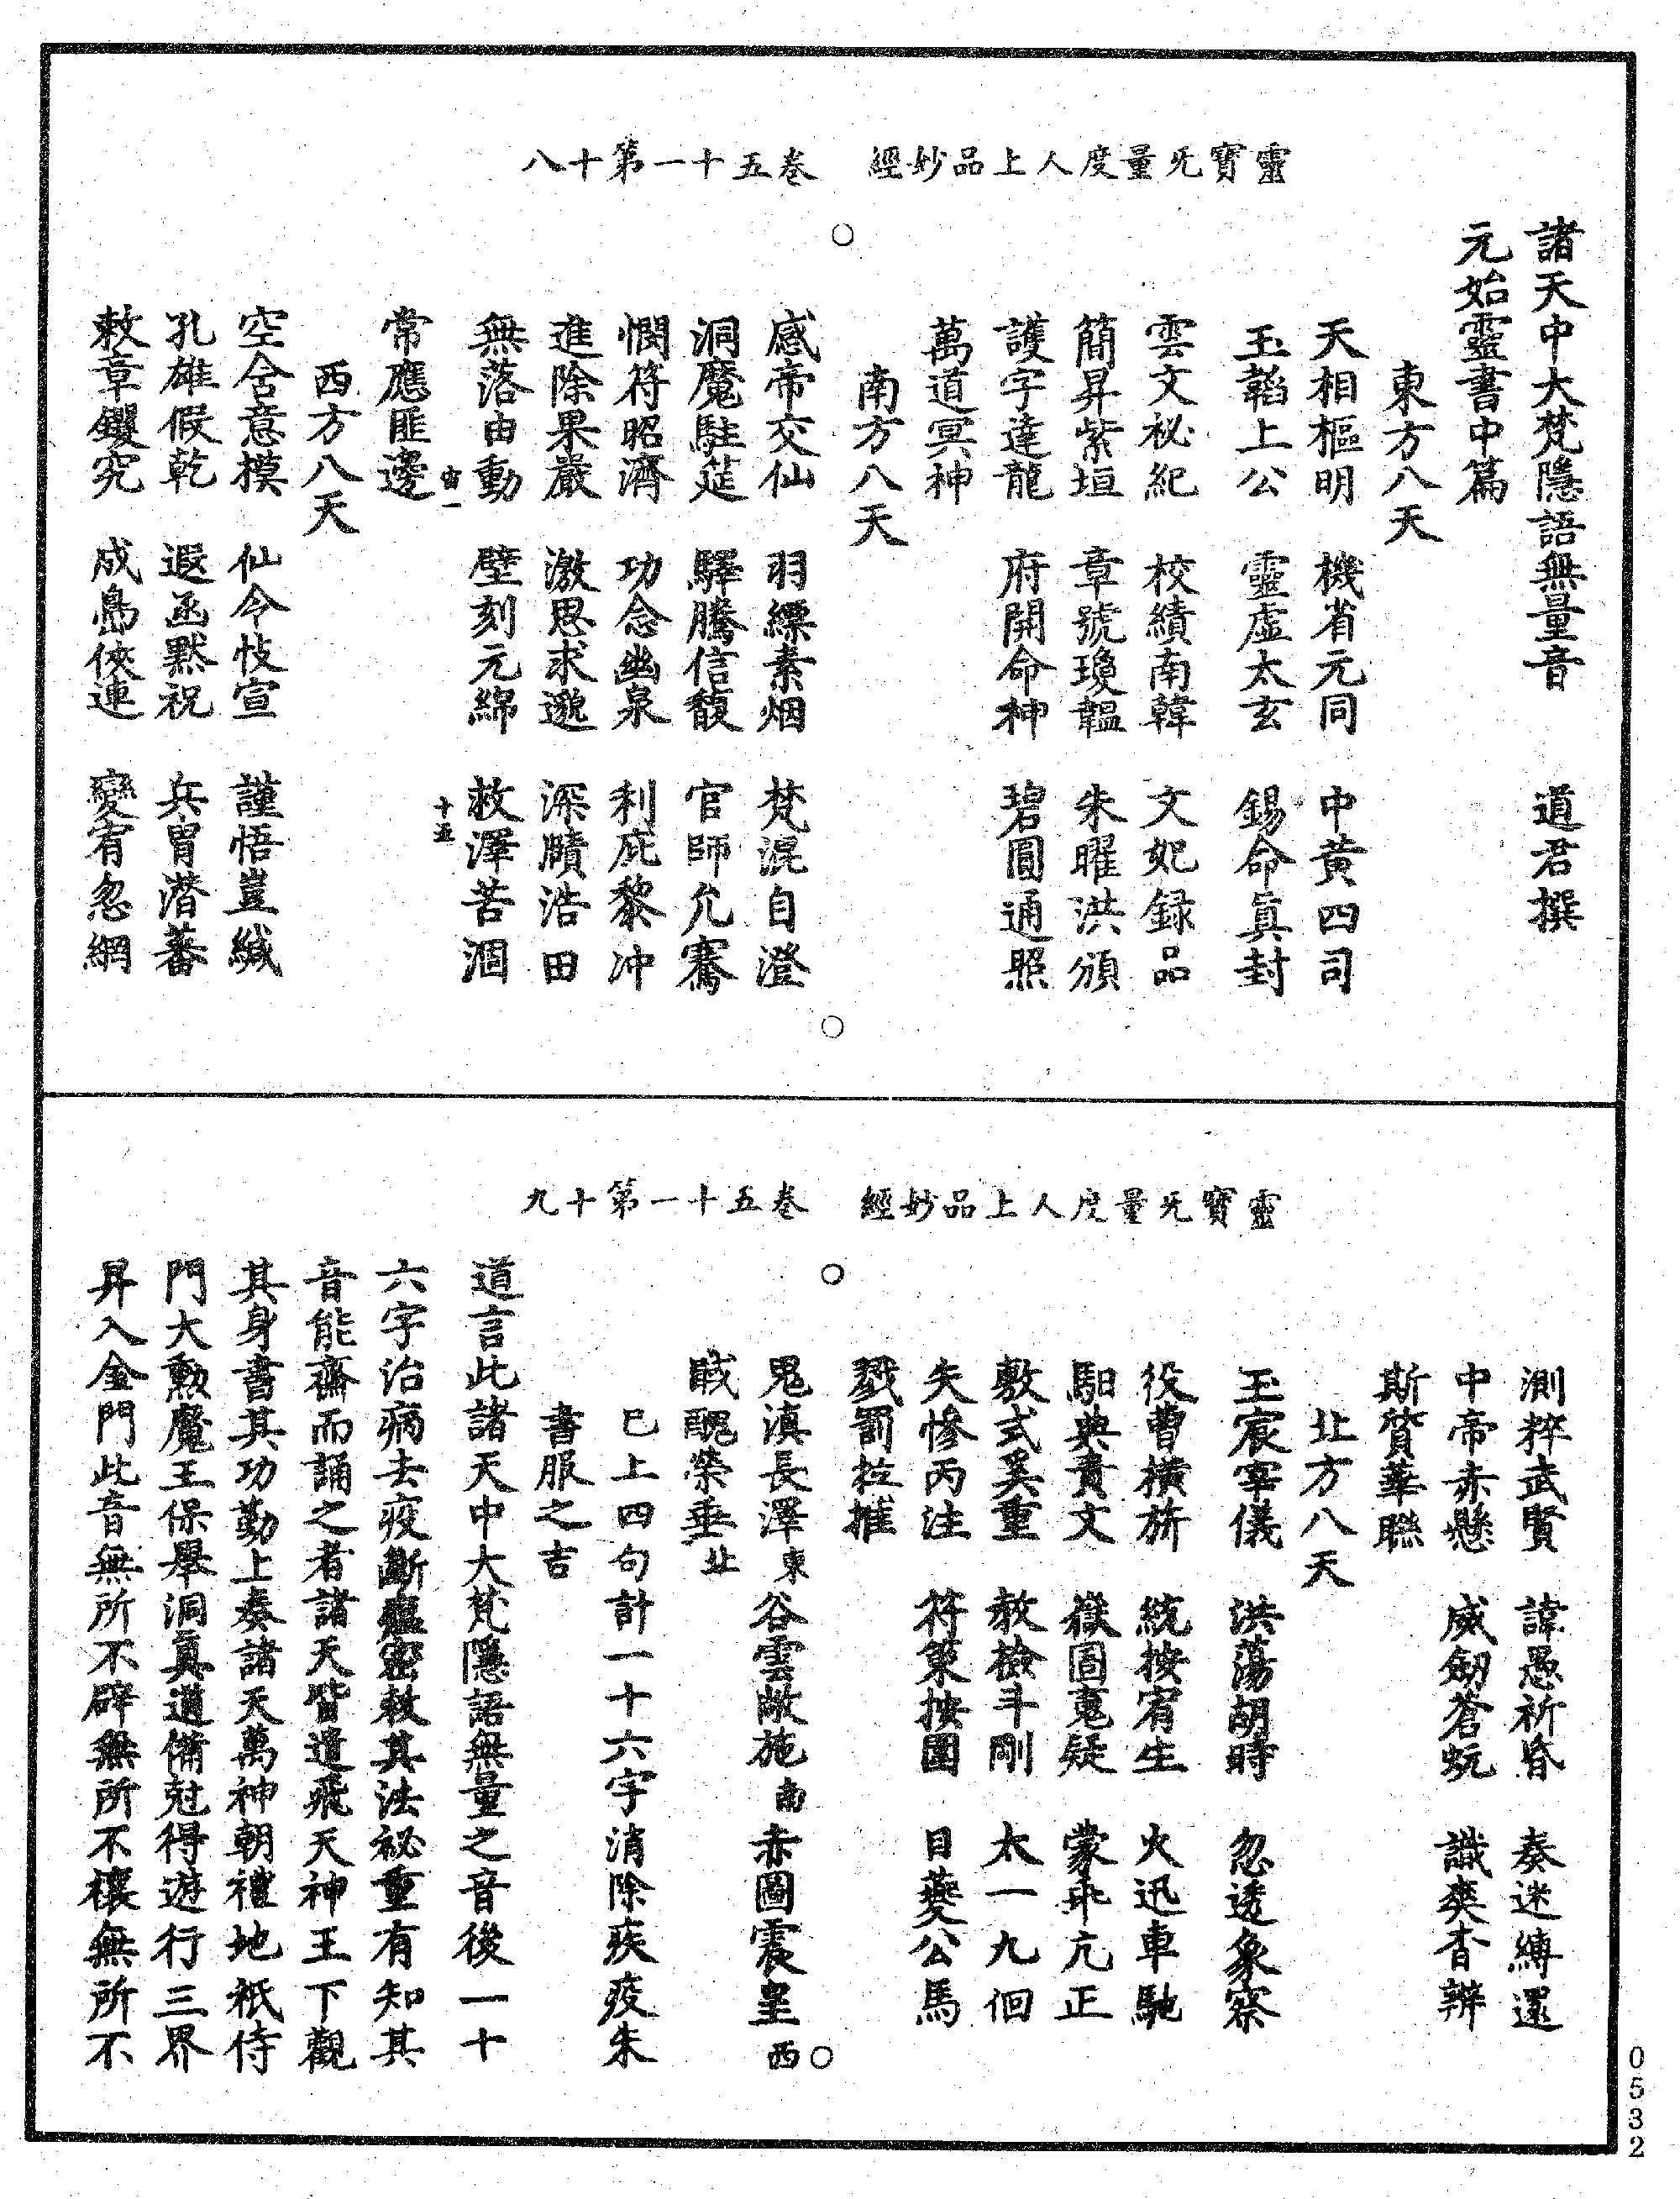 靈寶无量度人上品妙經　卷五十一第十八
諸天中大梵隱語無量音　道君撰
元始靈書中篇
東方八天
天相樞明　機省元同　中黃四司
玉韜上公　靈虛太玄　錫命真封
雲文祕紀　校績南韓　文妃録品
簡昇紫垣　章號瓊韞　朱曜洪頒
護字達龍　府開命神　碧圓通照
萬道冥神
南方八天
感帝交仙　羽縹素烟　梵混自澄
洞魔駐筵　驛騰信馥　官師允騫
憫符昭濟　功念幽泉　利庇黎冲
進除果嚴　激思求邈　深賾浩田
無落由動　壁刻元綿　救澤苦涸
宙一　十五
常應匪邊
西方八天
空含意模　仙令忮宣　謹悟豈緘
孔雄假乾　遐函默祝　兵胄潛蕃
敕章钁究　成梟俠連　變宥忽網
靈寶无量度人上品妙經　卷五十一第十九
測粹武賢　諱愚祈昏　奏迷縛還
中帝赤懸　威劒蒼蚖　識奕杳辨
斯贇華聮
北方八天
玉宸宰儀　洪蕩胡時　忽透象察
役曹橫旂　統按宥生　火迅車馳
馹典賁文　嶽圖寬疑　蒙乖亢正
敷式奚重　教檢斗剛　太一九徊
矢慘丙注　符策按圖　目藥公馬
戮罰拉摧
鬼滇長澤東　谷雲敞施南　赤圖震皇西
賊醜榮垂北
已上四句計一十六字消除疾疫朱
書服之吉
道言此諸天中大梵隱語無量之音後一十
六字治病去疫斷瘟密敕其法祕重有知其
音能齋而誦之者諸天皆遣飛天神王下觀
其身書其功勤上奏諸天萬神朝禮地祇侍
門大勲魔王保舉洞真道備尅得遊行三界
昇入金門此音無所不辟無所不禳無所不
0532